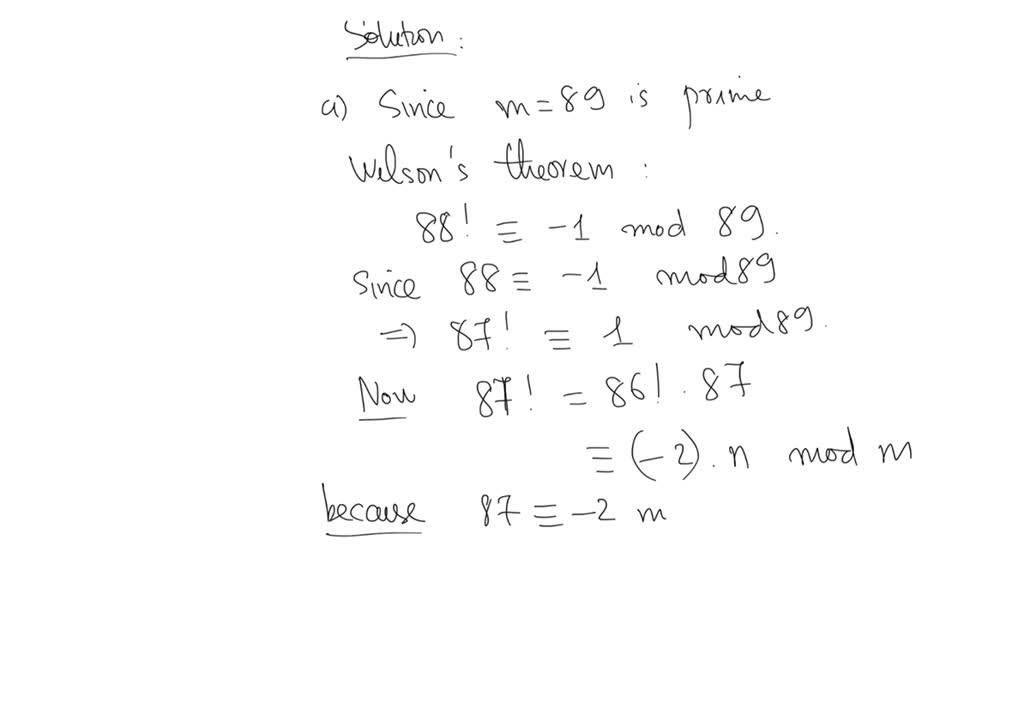 Solution:
a) Since m = 89 is prime
Wilson's theorem:
88! ≡ -1 mod 89.
Since 88 ≡ -1 mod 89
=> 87! ≡ 1 mod 89.
Now 87! = 86! . 87
≡ (-2) . n mod m
because 87 ≡ -2 m